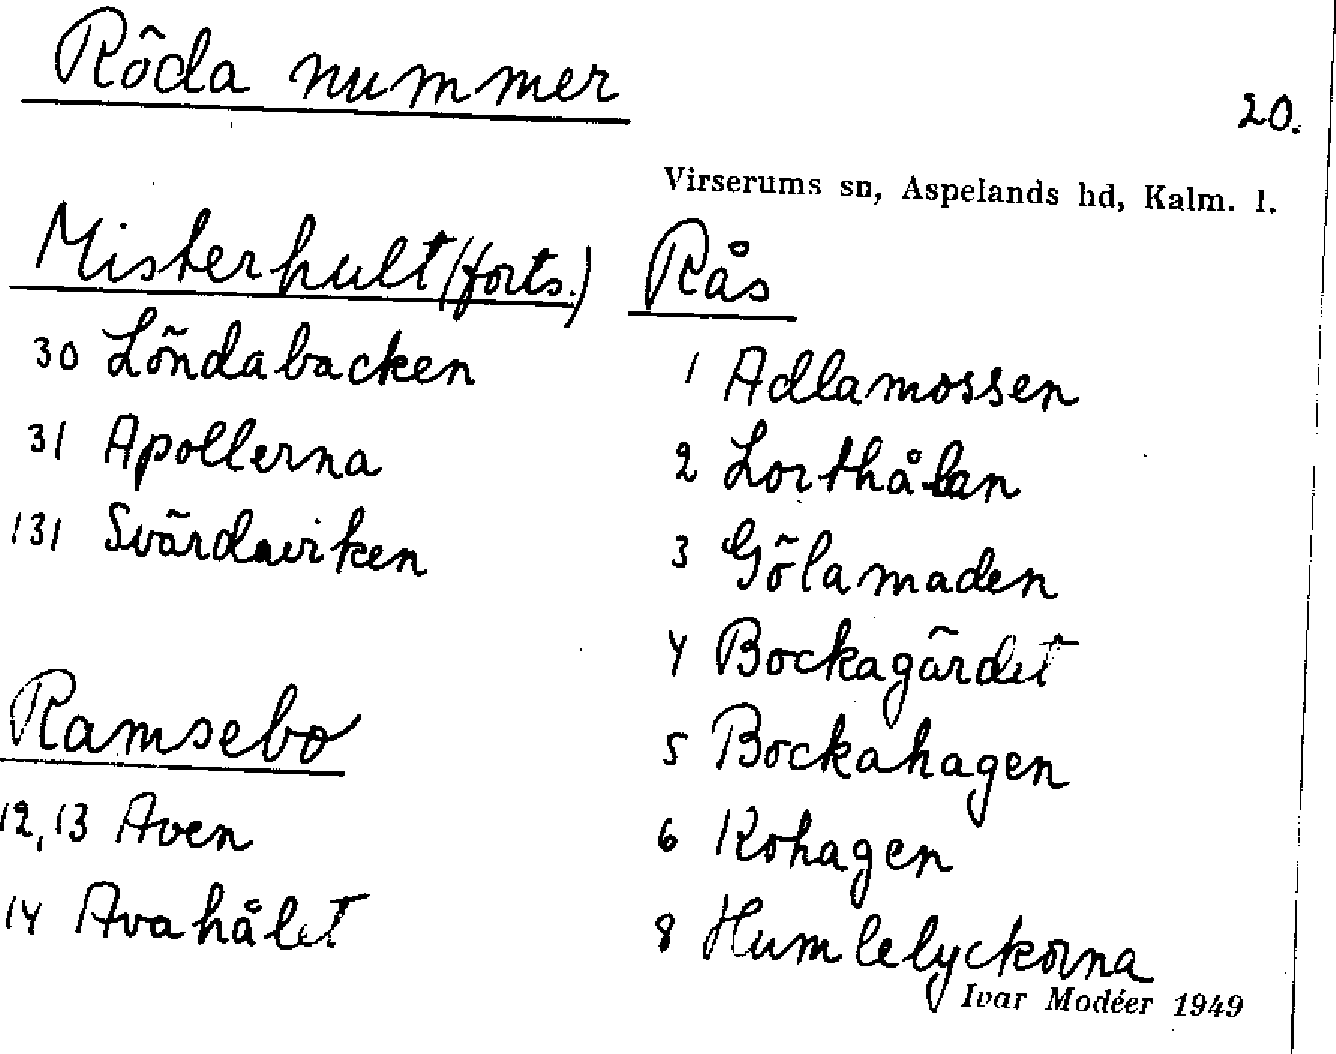 Röda nummer
20.
Virserums sn, Aspelands hd, Kalm. l.
Misterhult (forts.)
30 Löndabacken
31 Apollerna
131 Svärdaviken
Ramsebo
12,13 Aven
14 Avahålet
Rås
1 Adlamossen
2 Lorthålan
3 Gölamaden
4 Bockagärdet
5 Bockahagen
6 Kohagen
8 Humlelyckorna
Ivar Modéer 1949